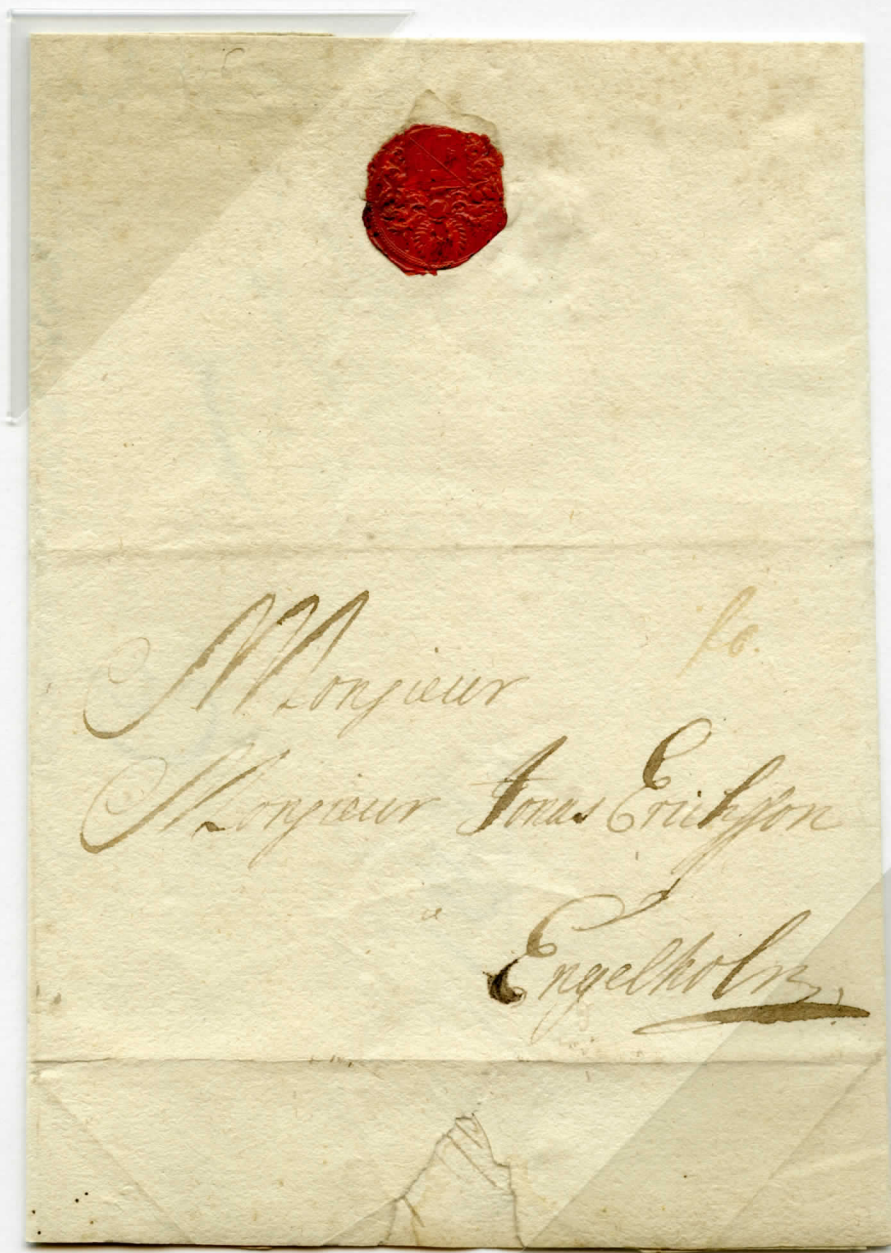 fo.
Monsieur
Monsieur Jonas Erichsson
a
Engelholm